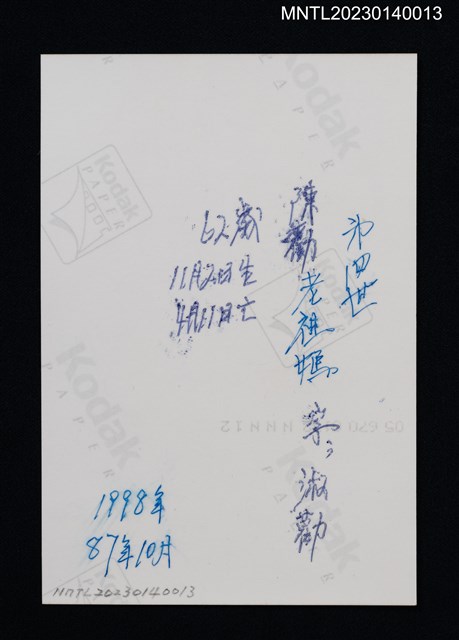 MNTL20230140013
Kodak
PAPER
Kodak
PAPER
Kodak
PAPER
Kodak
第四世
陳勸老祖媽
淑勸
62歲
11月2日生
4月11日亡
05 670 NNNN12
1998年
87年10月
MNTL20230140013